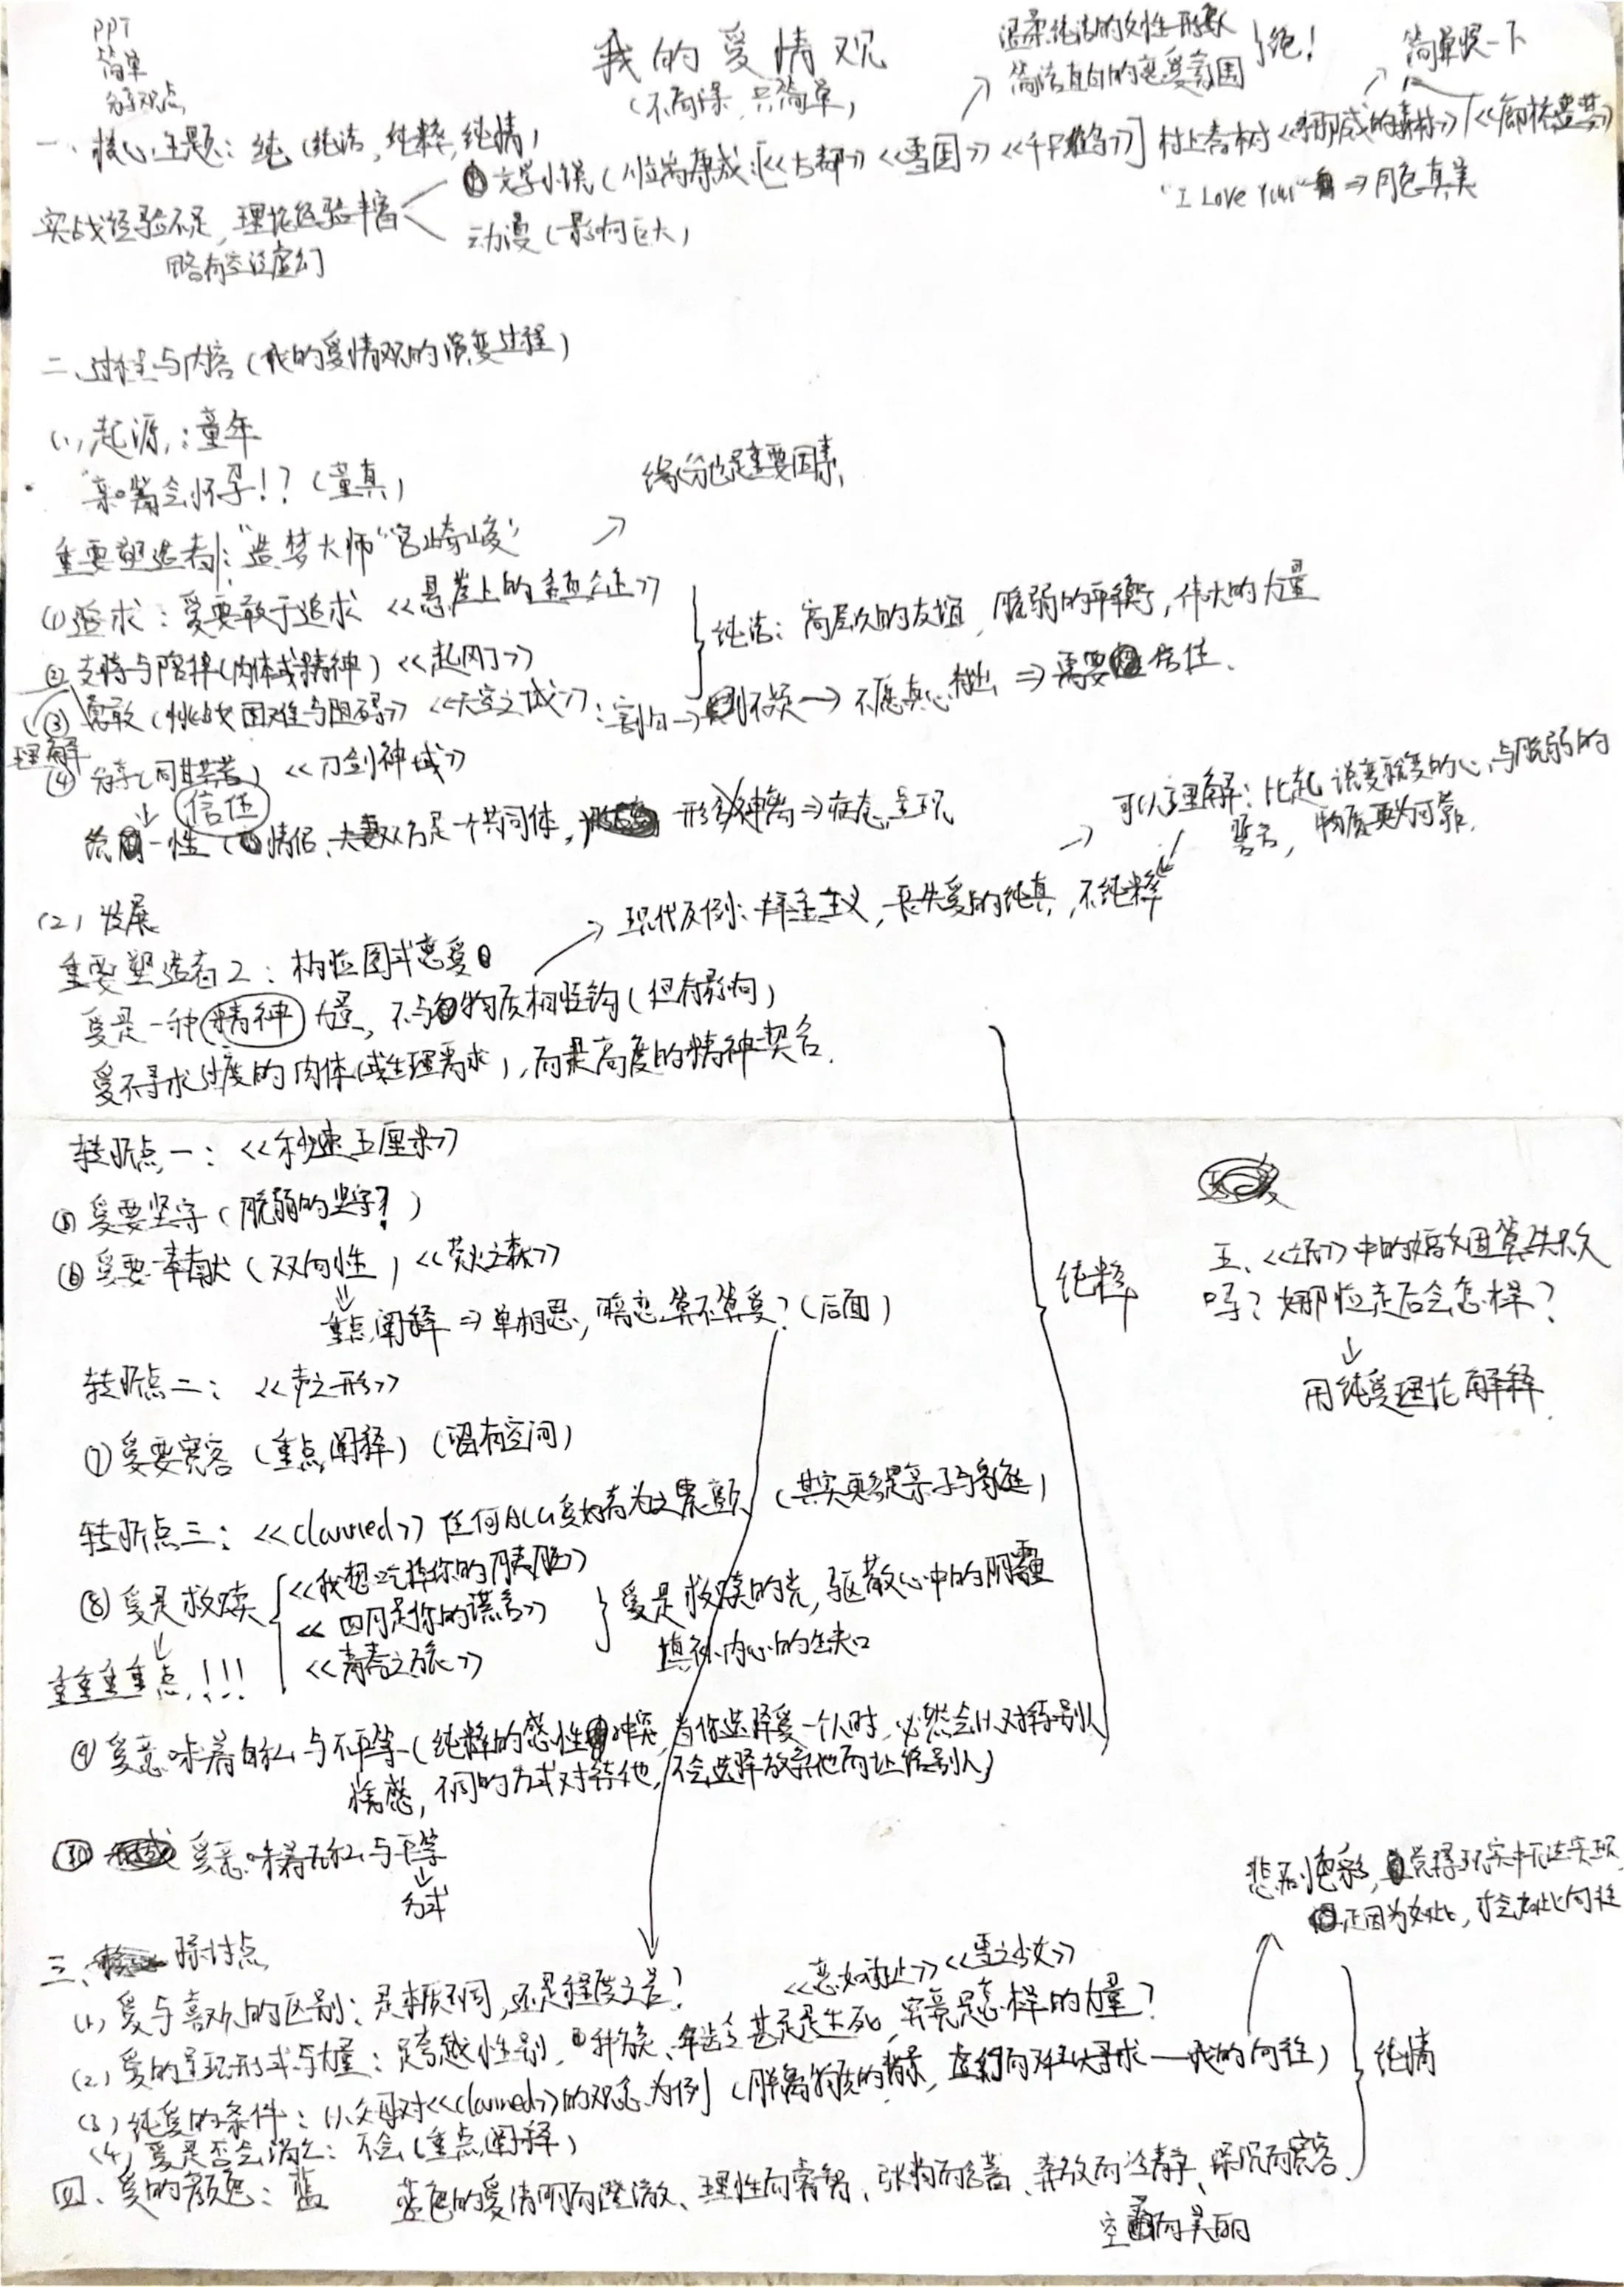 PPT
简单
分享观点
我的爱情观
(不高深,只简单)
温柔纯洁的女性形象
简洁直白的恋爱氛围
绝!
简单提一下
一、核心主题:纯(纯洁,纯粹,纯情)
文学小说(川端康成《古都》《雪国》《千只鹤》]村上春树《挪威的森林》/《廊桥遗梦》
"I Love You" ⇒ 月色真美
实战经验不足,理论经验丰富
动漫(影响巨大)
略有空泛虚幻
二、过程与内容(我的爱情观的演变过程)
(1)起源:童年
"亲嘴会怀孕!?(童真)
缘分也是重要因素
重要塑造者1:"造梦大师"宫崎峻
①追求:爱要敢于追求《悬崖上的金鱼公主》
②支持与陪伴(肉体或精神)《起风了》
纯洁:高层次的友谊,脆弱的平衡,伟大的力量
③勇敢(挑战困难与阻碍)《天空之城》
→不愿真心 ⇒ 需要信任.
理解
④分享(同甘共苦)《刀剑神域》
信任
统一性(情侣、夫妻双方是一个共同体, 形影神离⇒病态呈现
可以理解:比起说变就变的心与脆弱的
誓言,物质更为可靠.
(2)发展
现代反例:拜金主义,丧失爱的纯真,不纯粹
重要塑造者2:柏拉图式恋爱
爱是一种精神力量,不与物质相挂钩(但有影响)
爱不寻求过度的肉体(或生理需求),而是高度的精神契合.
转折点一:《秒速五厘米》
⑤爱要坚守(脆弱的坚守?)
⑥爱要奉献(双向性)《萤火之森》
重点阐释⇒单相思,暗恋算不算爱?(后面)
纯粹
五、《》中的婚姻算失败
吗?娜拉走后会怎样?
用纯爱理论解释.
转折点二:《声之形》
⑦爱要宽容(重点阐释)(留有空间)
转折点三:《clannad》任何ACG爱好者为之震颤(其实更多是亲子与家庭)
⑧爱是救赎
《我想吃掉你的胰脏》
《四月是你的谎言》
《青春之旅》
爱是救赎的光,驱散心中的阴霾
填补内心的缺口
重重重重点!!!
⑨爱意味着自私与不平等(纯粹的感性冲突,当你选择爱一个人时,必然会以对待别人
情感,不同的方式对待他,不会选择放弃他而让给别人)
⑩爱意味着无私与平等
方式
悲剧色彩,觉得现实中无法实现
正因为如此,才会如此向往
三、探讨点
(1)爱与喜欢的区别:是本质不同,还是程度之差?
《恋如雨止》《雪之少女》
(2)爱的呈现形式与力量:跨越性别,种族、年龄甚至是生死,究竟是怎样的力量?
(3)纯爱的条件:以父母对《clannad》的观念为例(脱离物质的背景,虚幻而难以寻求—我的向往)
纯情
(4)爱是否会消亡:不会(重点阐释)
四、爱的颜色:蓝 蓝色的爱清明而澄澈、理性而睿智、张扬而含蓄、奔放而冷静、深沉而宽容
空而美丽